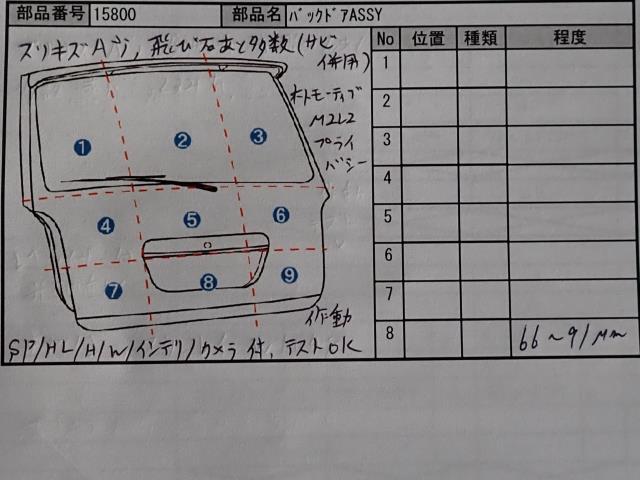 部品番号 15800 部品名 ﾊﾞｯｸﾄﾞｱASSY
スリキズA, 飛び石あと多数(サビ
併用)
オートモーティブ
M2L2
プライ
バシー
① ② ③
④ ⑤ ⑥
⑦ ⑧ ⑨
作動
SP/HL/H/W/インテリ/カメラ付, テストOK
No 位置 種類 程度
1
2
3
4
5
6
7
8 66~91μm